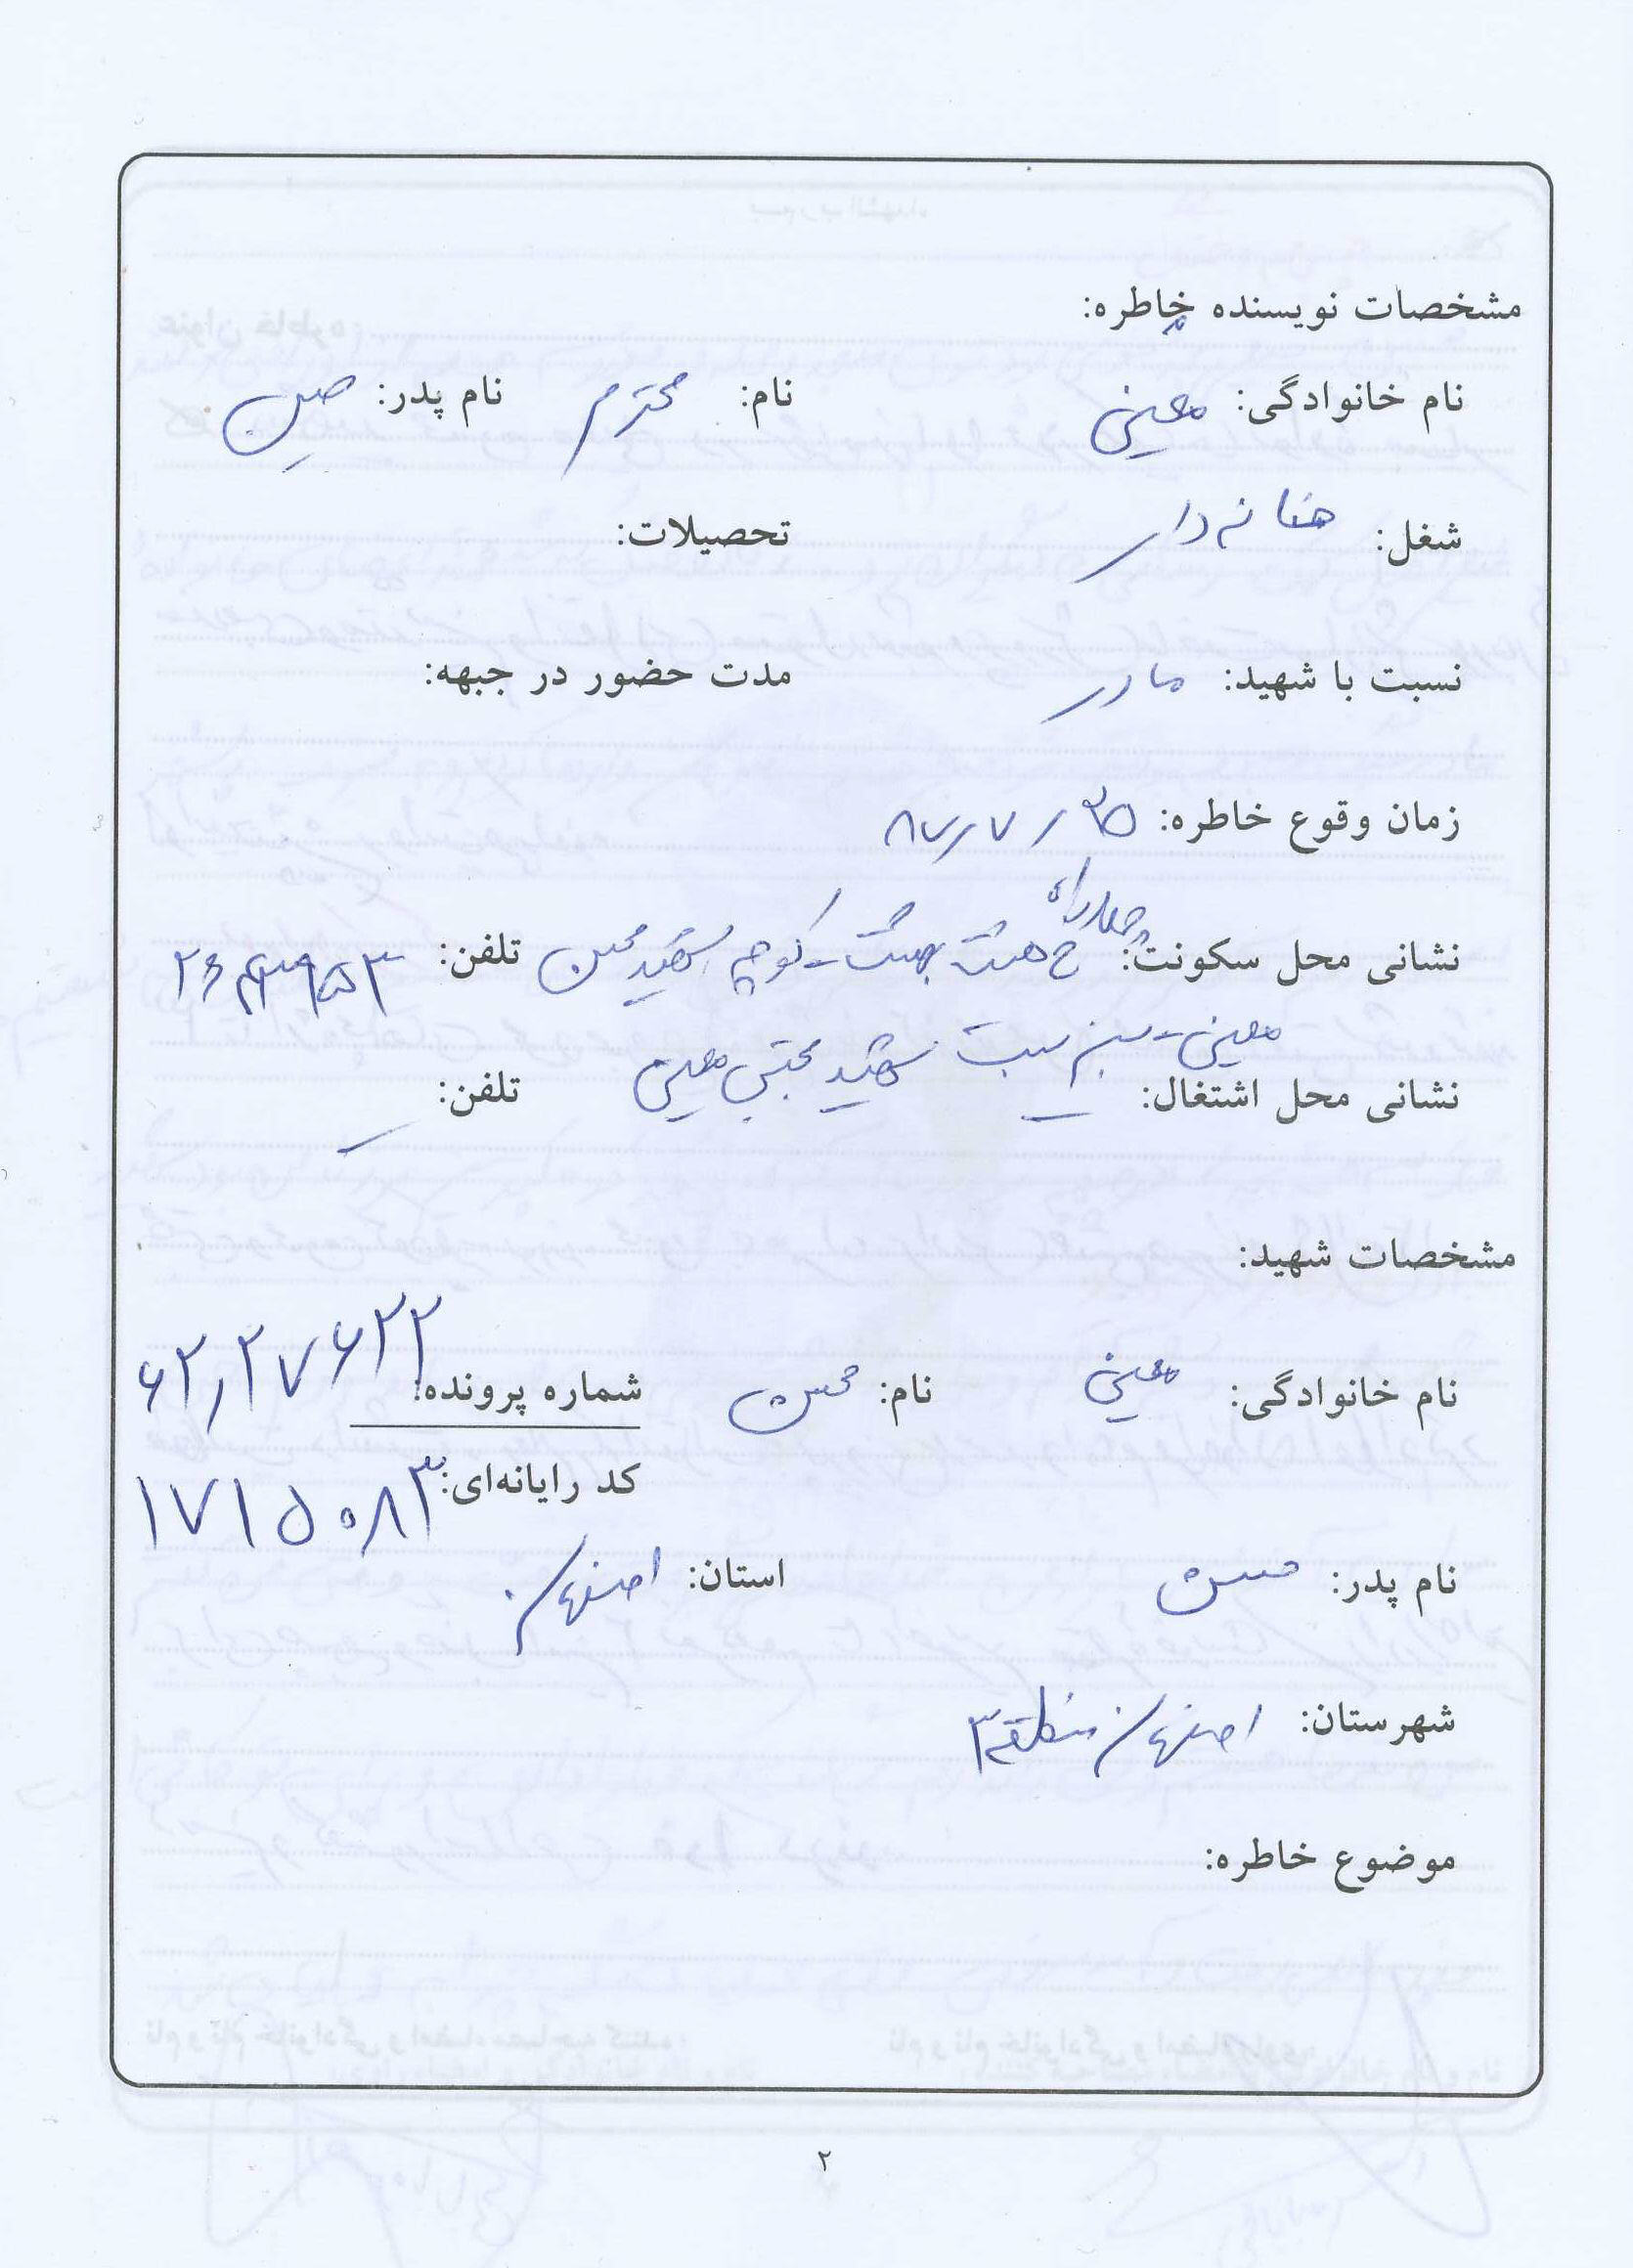 مشخصات نویسنده خاطره:
نام خانوادگی: معینی نام: محترم نام پدر:
شغل: خانه دار تحصیلات:
نسبت با شهید: مادر مدت حضور در جبهه:
زمان وقوع خاطره: ۸۷/۷/۲۵
چهارراه
نشانی محل سکونت: خ هشت بهشت - کوچه شهید محسن تلفن:
معینی - بن بست شهید مجتبی معینی
نشانی محل اشتغال: — تلفن: —
مشخصات شهید:
نام خانوادگی: معینی نام: محسن شماره پرونده: ۶۲,۲۷۶۲۲
کد رایانه‌ای: ۱۷۱۵۰۸۳
نام پدر: استان: اصفهان
شهرستان: اصفهان منطقه ۳
موضوع خاطره:
۲